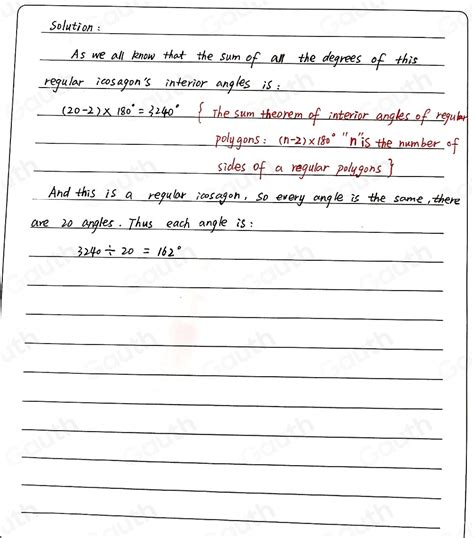 Solution:
As we all know that the sum of all the degrees of this
regular icosagon's interior angles is:
(20-2)×180°=3240° { The sum theorem of interior angles of regular
polygons: (n-2)×180° "n" is the number of
sides of a regular polygons }
And this is a regular icosagon, so every angle is the same, there
are 20 angles. Thus each angle is:
3240÷20 = 162°
Gauth